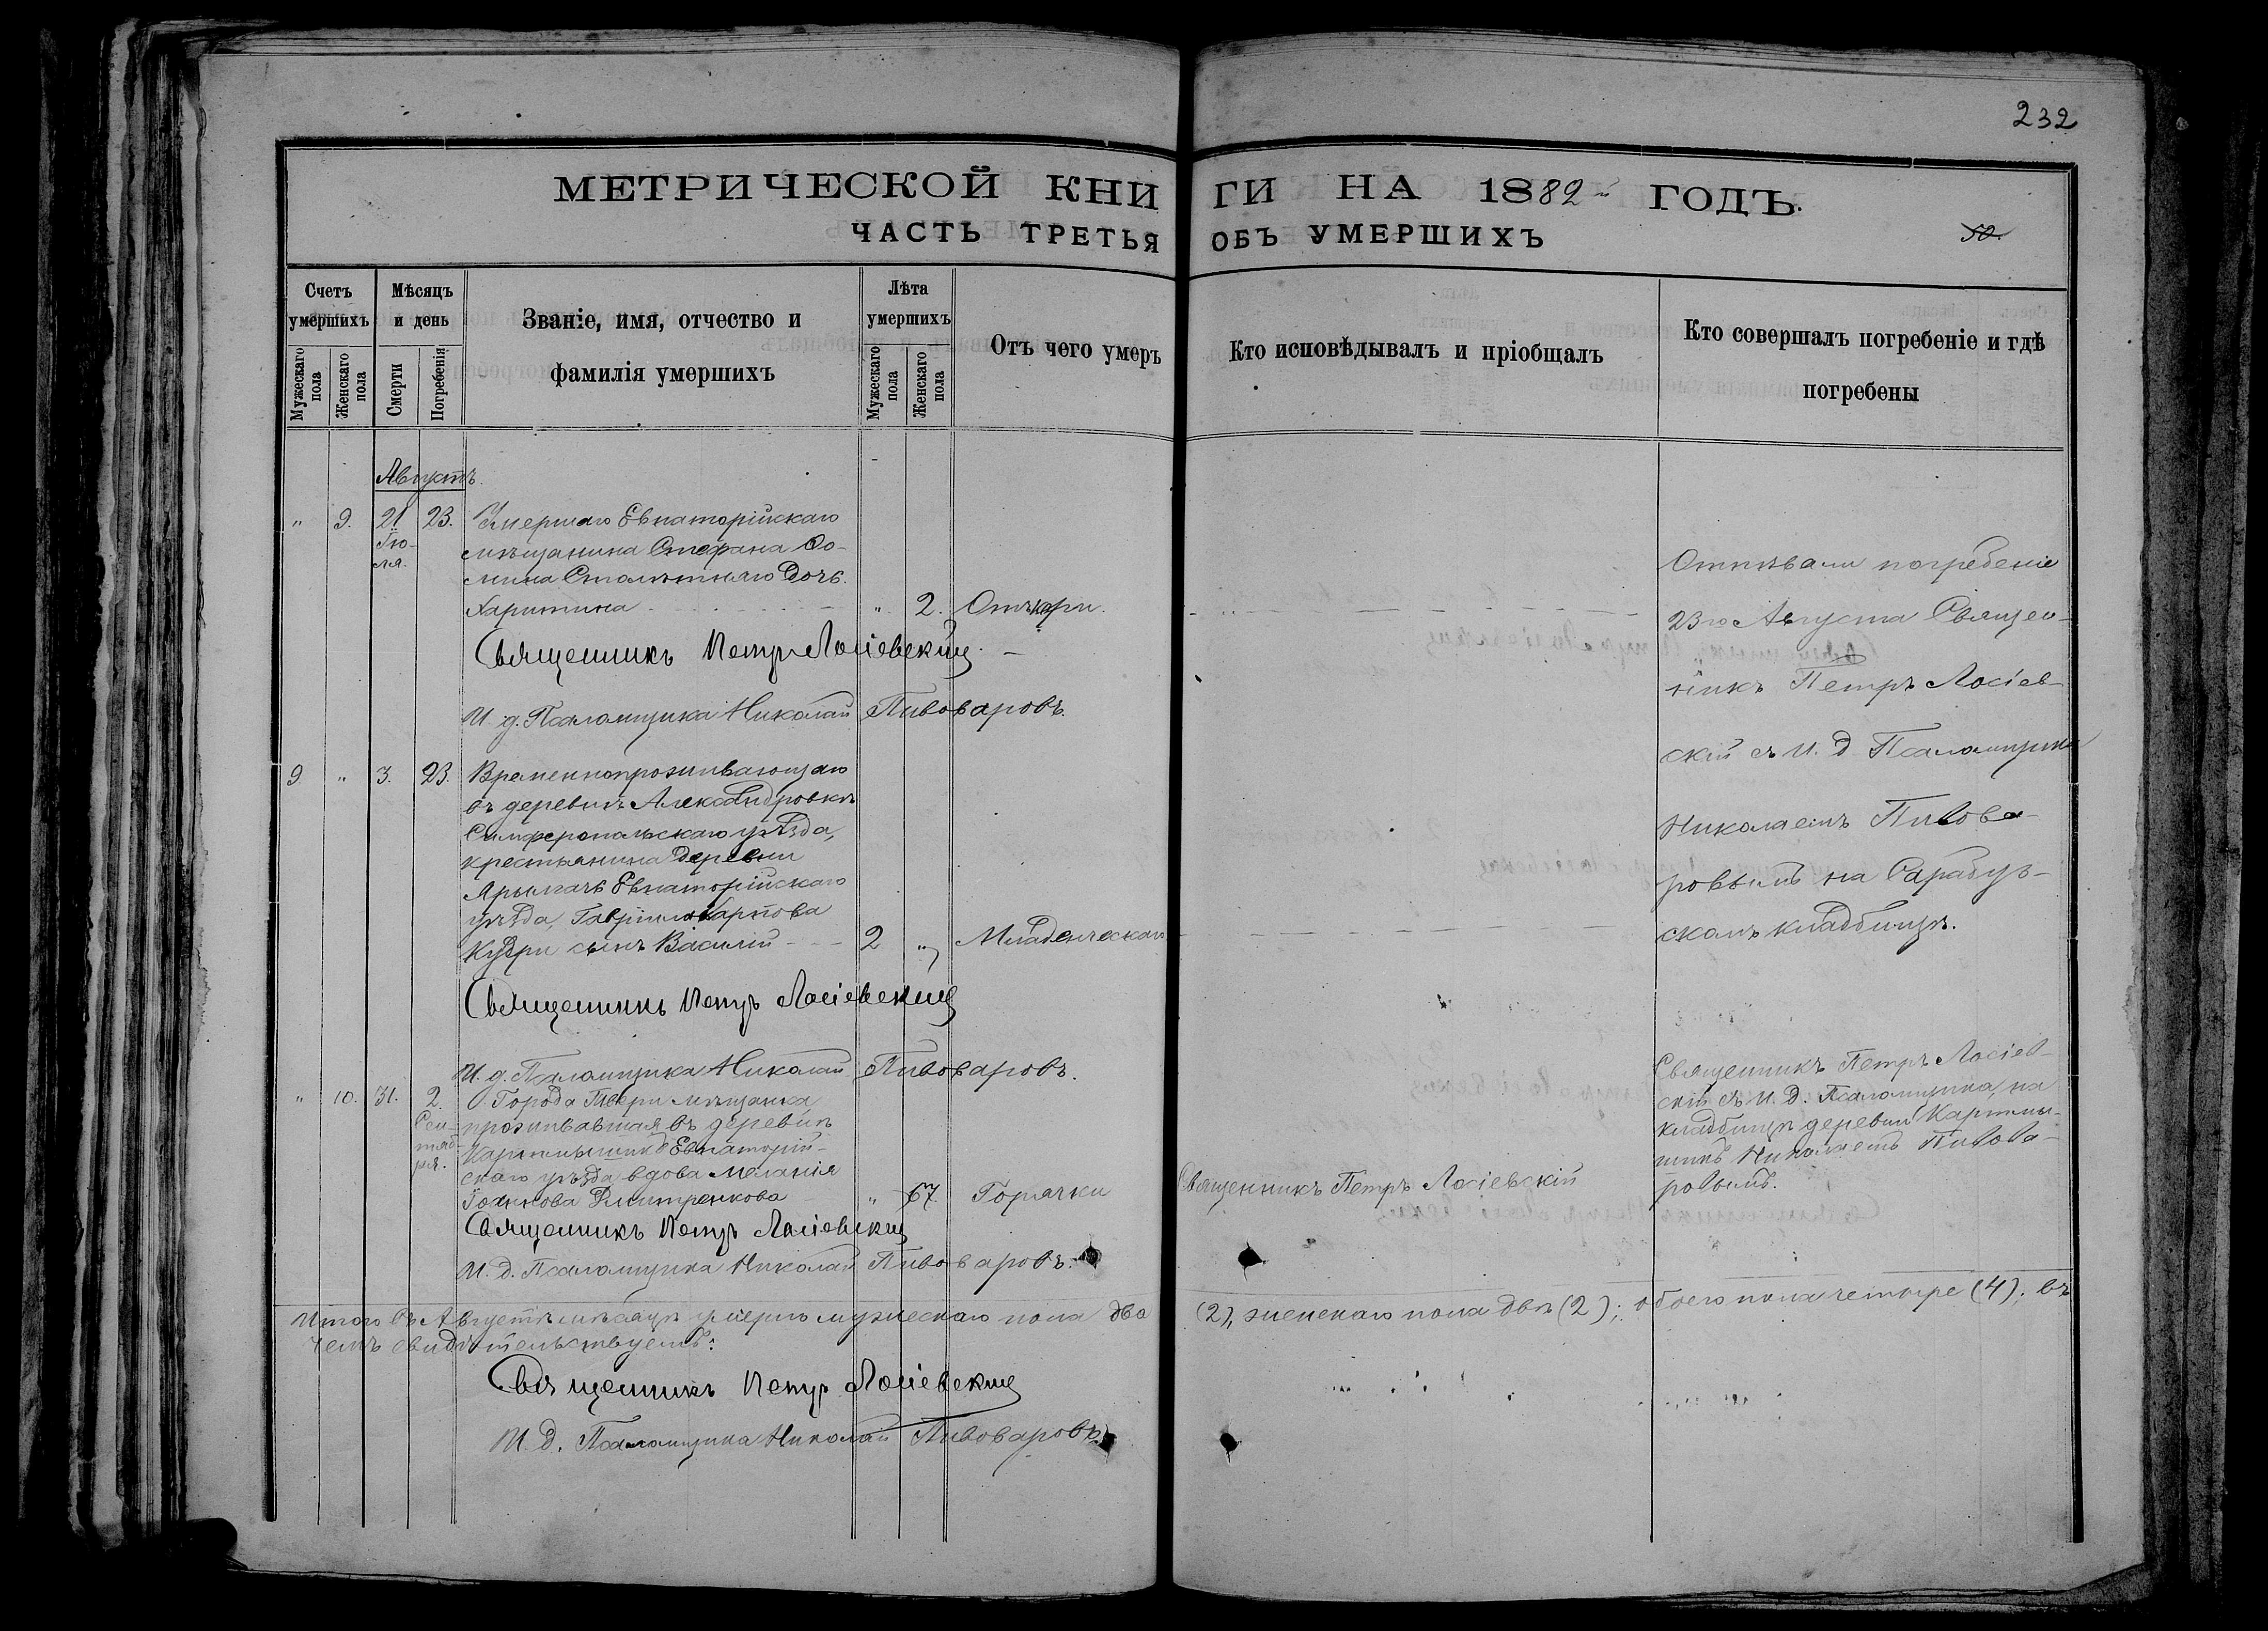 232
МЕТРИЧЕСКОЙ КНИГИ НА 1882й ГОДЪ.
ЧАСТЬ ТРЕТЬЯ ОБЪ УМЕРШИХЪ
50.
Счетъ умершихъ
Мужескаго пола
Женскаго пола
Мѣсяцъ и день
Смерти
Погребенія
Званіе, имя, отчество и
фамилія умершихъ
Лѣта умершихъ
Мужескаго пола
Женскаго пола
Отъ чего умеръ
Кто исповѣдывалъ и пріобщалъ
Кто совершалъ погребеніе и гдѣ
погребены
Августъ.
" 9. 21 23. Умершаго Евпаторійскаго
Іюля.
мѣщанина Стефана Ѳо-
мина Столѣтняго дочь
Харитина " 2.
Священникъ Петръ Лосіевскій
И. д. Псаломщика Николай Пивоваровъ.
Отпѣвали погребеніе
23го Августа Священ-
никъ Петръ Лосіев-
скій съ И. д Псаломщика
Николаемъ Пивова-
ровымъ на Сарабуз-
скомъ кладбищѣ.
9 " 3. 23. Временнопроживающаго
въ деревнѣ Александровкѣ
Симферопольскаго уѣзда,
крестьянина деревни
Ярылгачъ Евпаторійскаго
уѣзда, Гавріила Карпова
сынъ Василій 2 " Младенческаго
Священникъ Петръ Лосіевскій
И. д. Псаломщика Николай Пивоваровъ.
" 10. 31. 2. Города Твери мѣщанка
Сентября.
проживавшая въ деревнѣ
Картмышикъ Евпаторій-
скаго уѣзда вдова Меланія
Іоаннова Дмитренкова " 67. Горячки
Священникъ Петръ Лосіевскій
Священникъ Петръ Лосіев-
скій съ И. д. Псаломщика, на
кладбищѣ деревни Картмы-
шикъ Николаемъ Пивова-
ровымъ.
Священникъ Петръ Лосіевскій
И. д. Псаломщика Николай Пивоваровъ.
Итого въ Августѣ мѣсяцѣ умерло мужескаго пола два (2), женскаго пола двѣ (2); обоего пола четыре (4); въ
чемъ свидѣтельствуемъ:
Священникъ Петръ Лосіевскій
И. д. Псаломщика Николай Пивоваровъ.